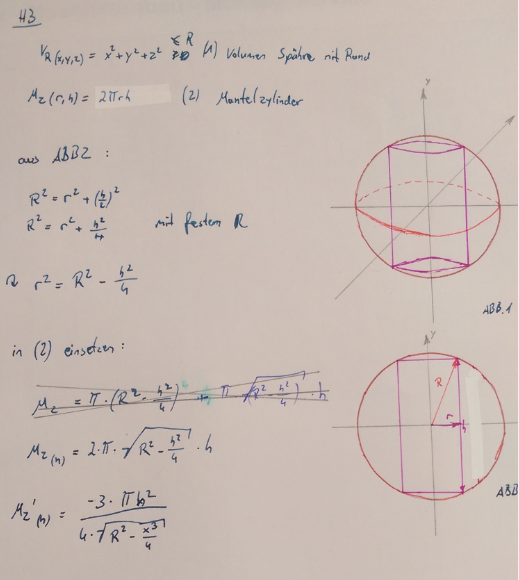 H3
V_R(x,y,z) = x² + y² + z² ≤ R (1) Volumen Sphäre mit Rand
M_Z(r,h) = 2πrh (2) Mantelzylinder
aus ABB2 :
R² = r² + (h/2)²
R² = r² + h²/4 mit festem R
r² = R² - h²/4
in (2) einsetzen :
M_Z = π · (R² - h²/4) + π √(R² - h²/4) · h
M_Z(h) = 2·π·√(R² - h²/4) · h
M_Z'(h) = (-3 · πh²) / (4·√(R² - x³/4))
y
ABB.1
y
R
r
h
ABB